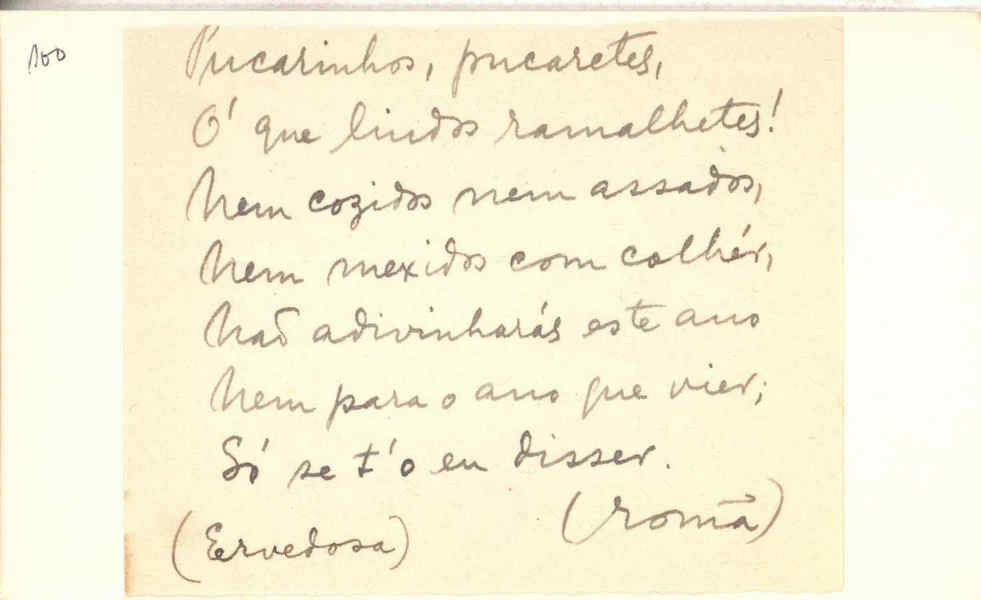 100
Pucarinhos, pucaretes,
Ó que lindos ramalhetes!
Nem cozidos nem assados,
Nem mexidos com colhér,
Não adivinharás este ano
Nem para o ano que vier;
Só se t'o eu disser.
(Ervedosa) (romã)